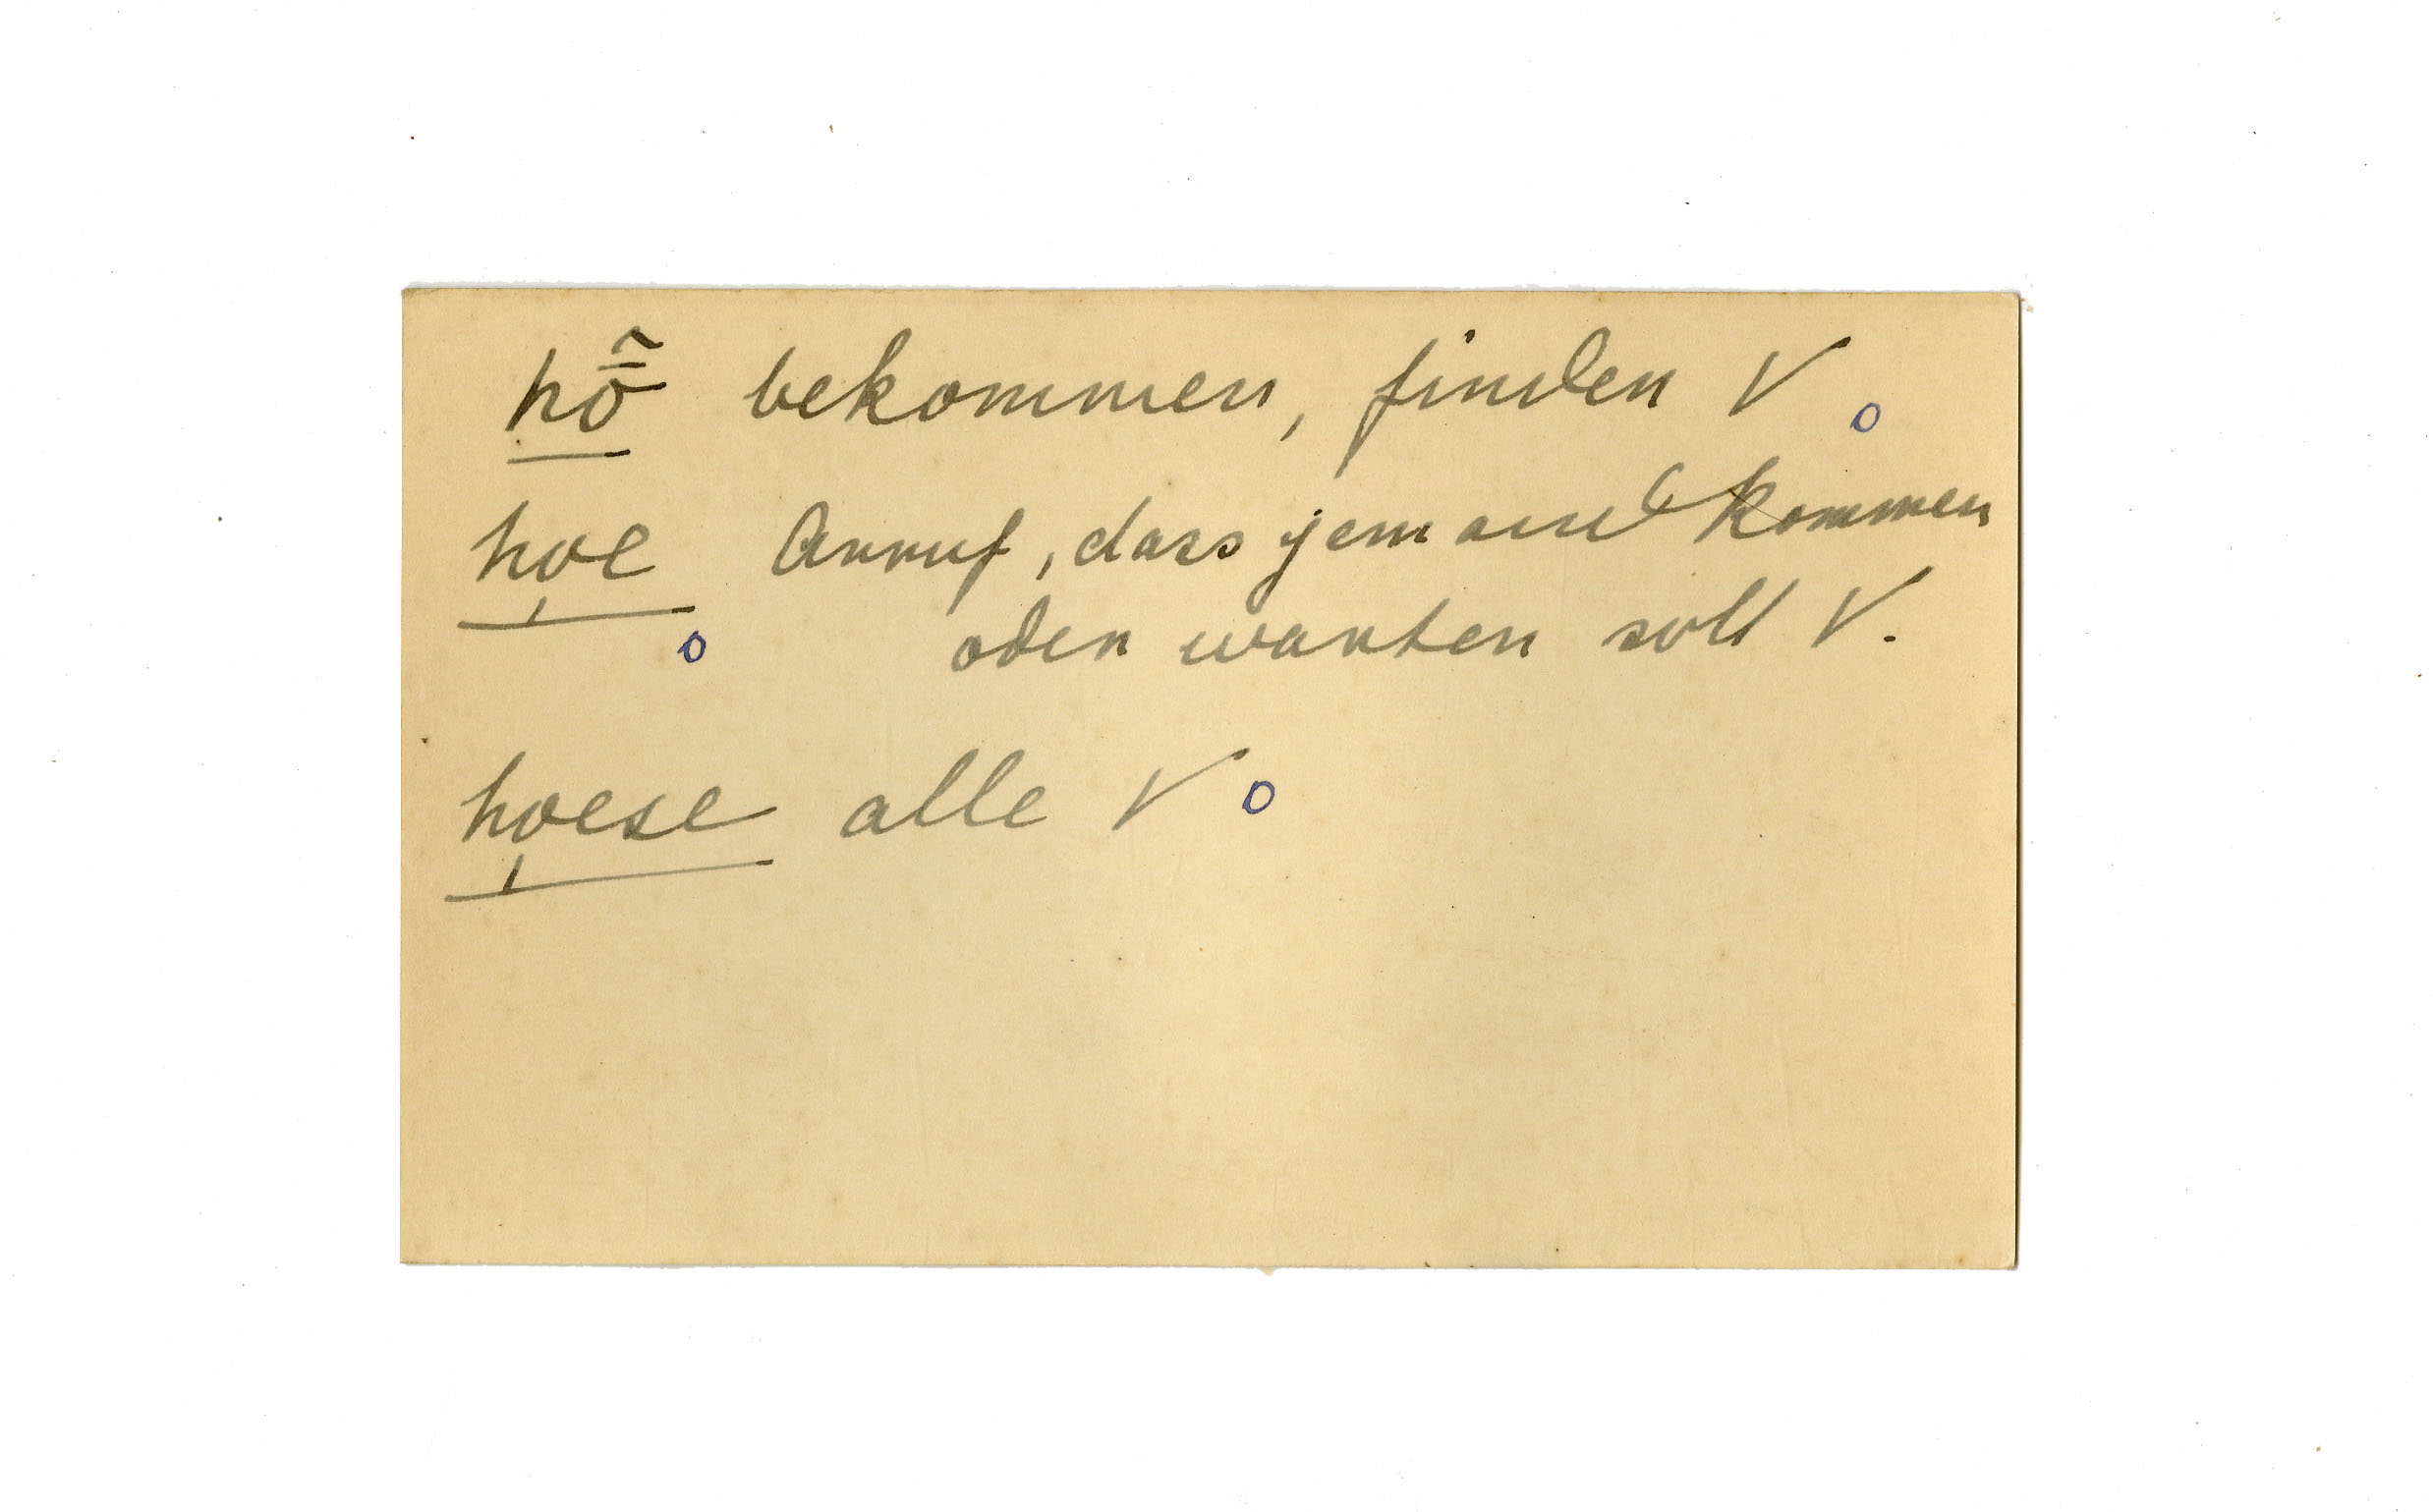 hō̃ bekommen, finden V o
ho̩e Anruf, dass jemand kommen
o oder warten soll V.
ho̩ese alle V o